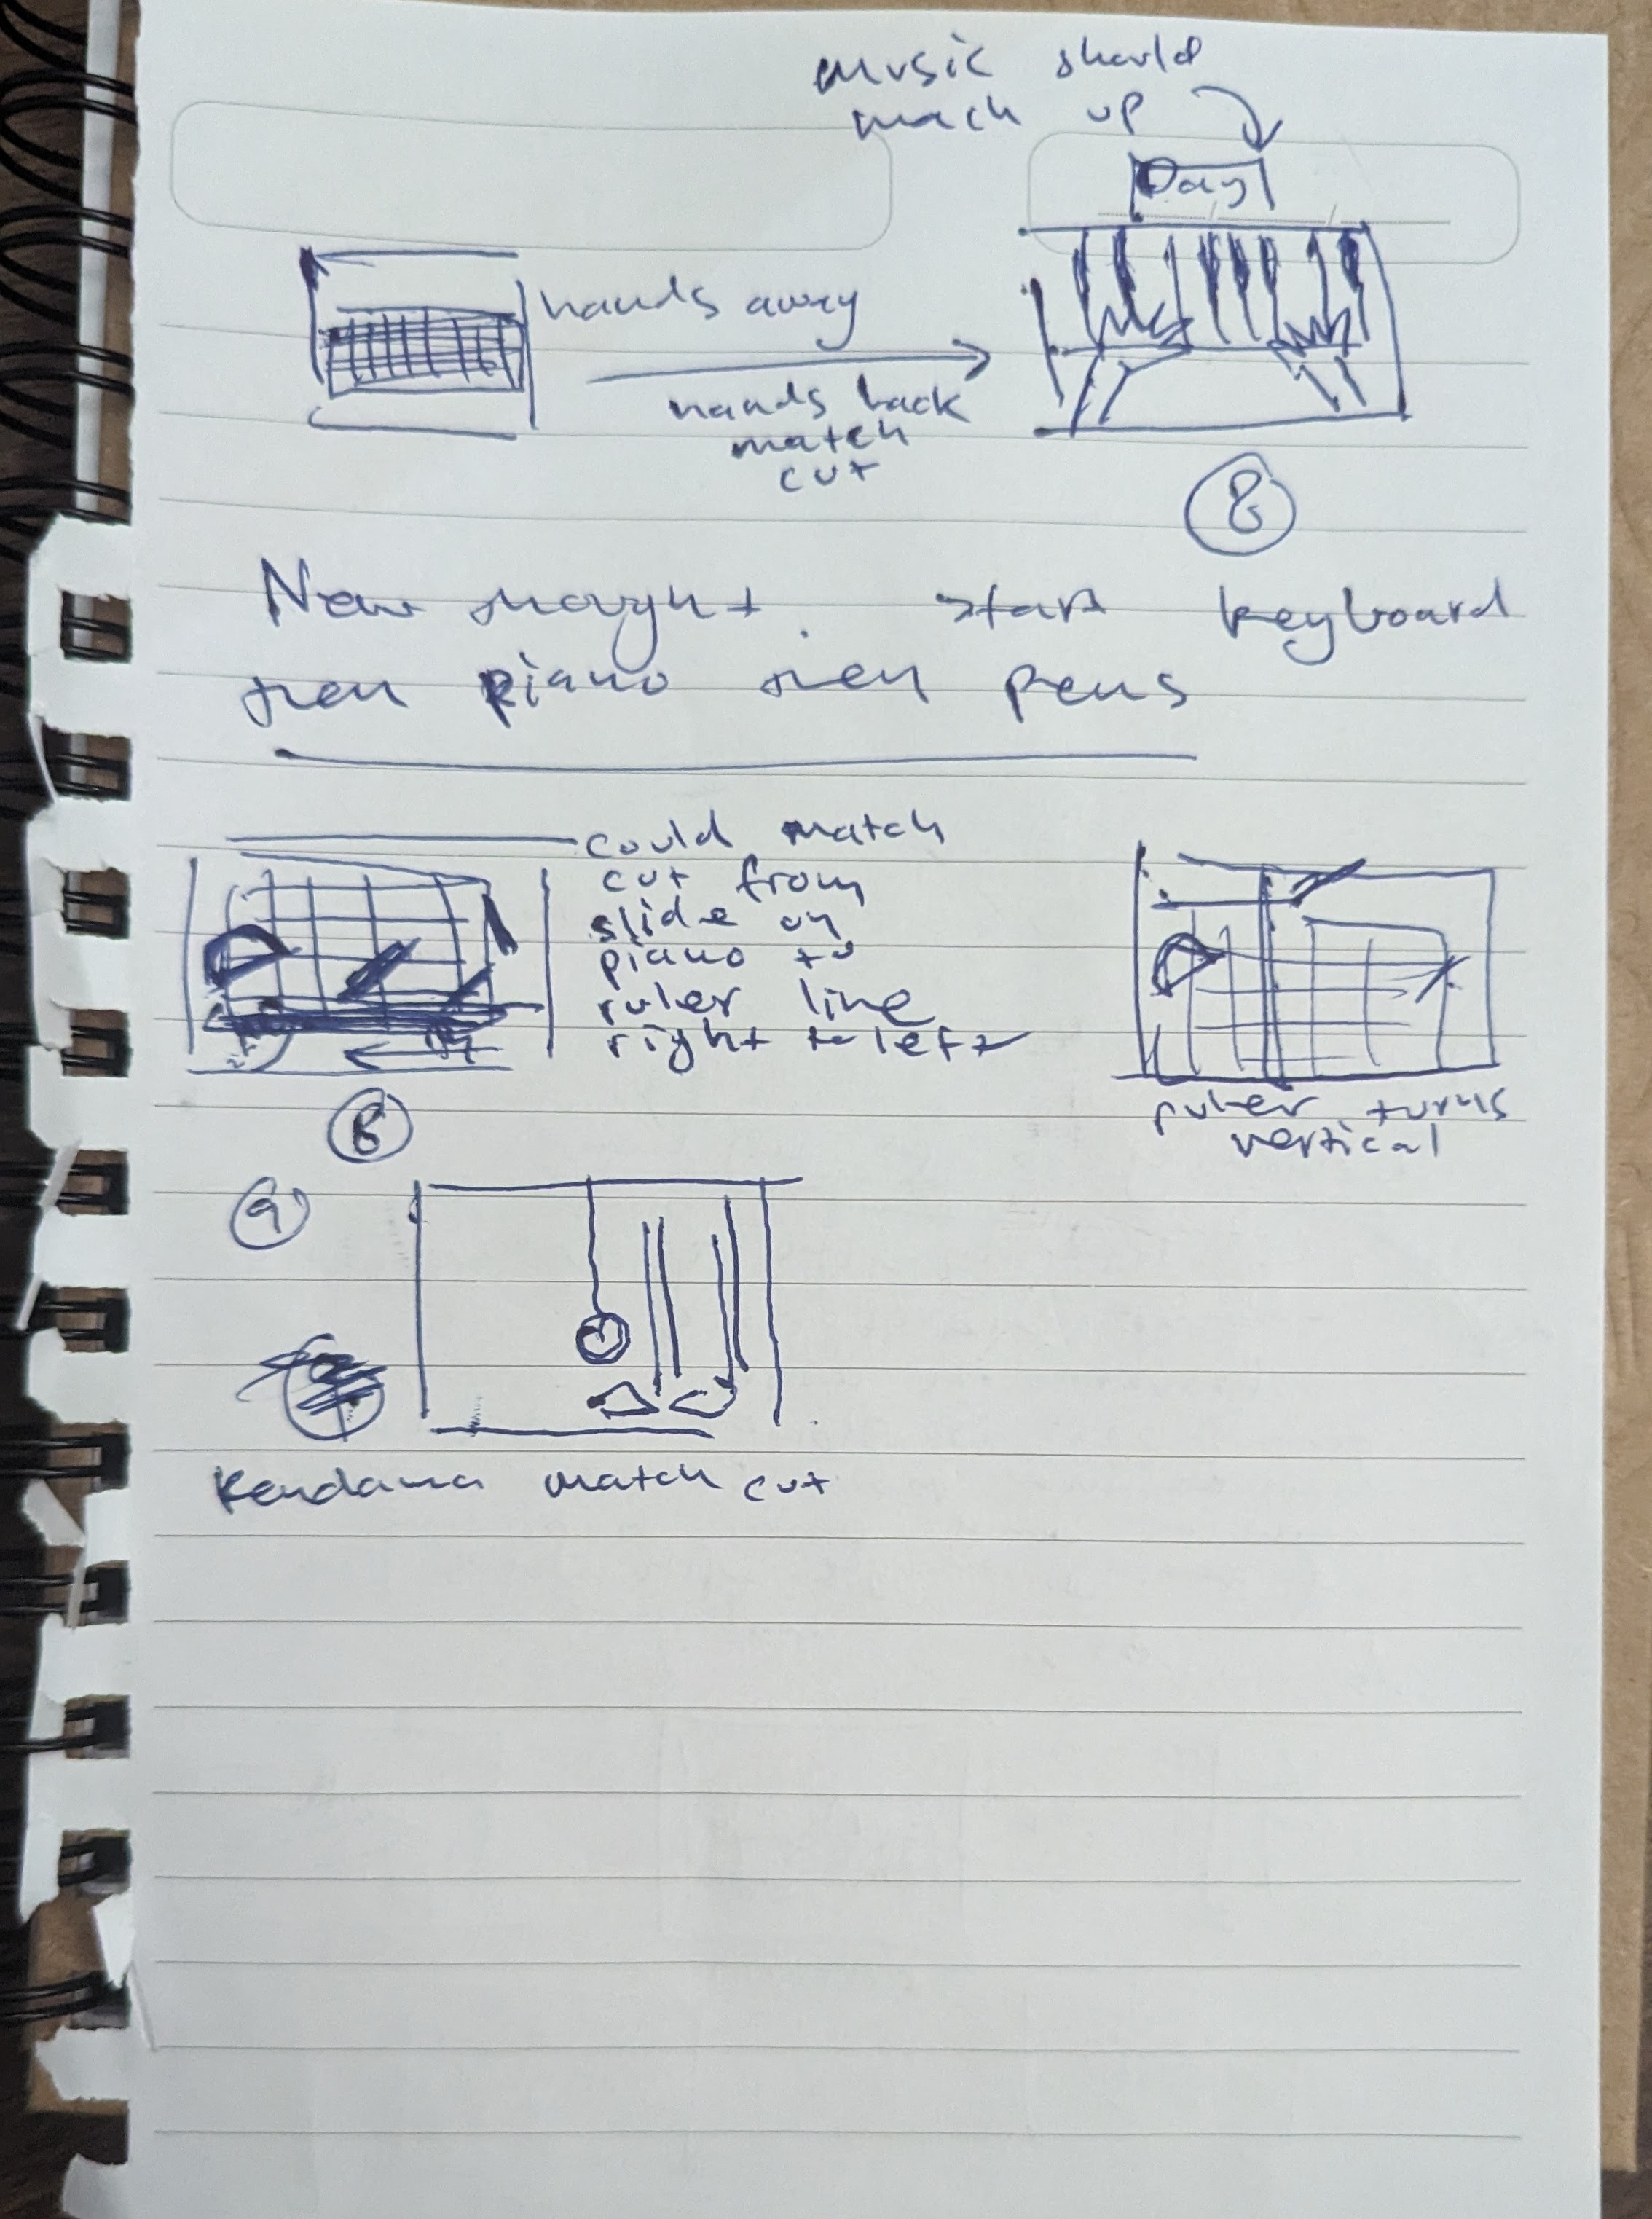 music should
mach up
Day
hands away
hands back
match
cut
8
New thought. start keyboard
then piano then pens
could match
cut from
slide on
piano to
ruler line
right to left
8
ruler turns
vertical
9
Kendama match cut